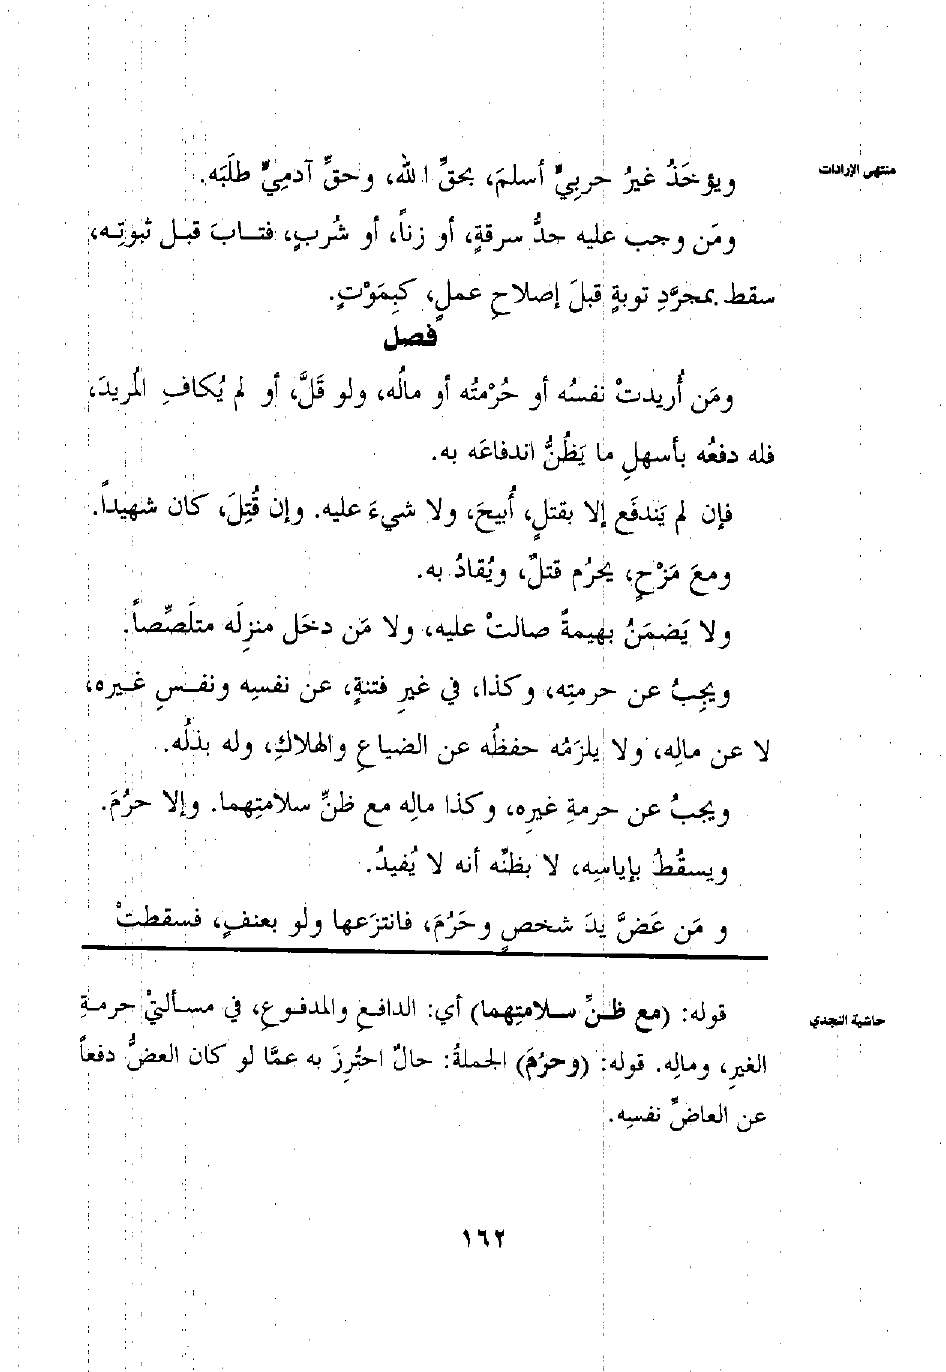 منتهى الإرادات
ويؤخَذُ غيرُ حربِيٍّ أسلمَ، بحقِّ الله، وحقِّ آدمِيٍّ طلَبَه.
ومَن وجب عليه حدُّ سرقةٍ، أو زناً، أو شُربٍ، فتابَ قبل ثبوتِه،
سقط بمجرَّدِ توبةٍ قبلَ إصلاحِ عملٍ، كبِمَوْتٍ.
فصل
ومَن أُريدتْ نفسُه أو حُرْمتُه أو مالُه، ولو قَلَّ، أو لم يُكافِ المُريدَ،
فله دفعُه بأسهلِ ما يَظُنُّ اندفاعَه به.
فإن لم يَندفَع إلا بقتلٍ، أُبيحَ، ولا شيءَ عليه. وإن قُتِلَ، كان شهيداً.
ومعَ مَزْحٍ، يحرُم قتلٌ، ويُقادُ به.
ولا يَضمَنُ بهيمةً صالتْ عليه، ولا مَن دخَل منزِلَه متلَصِّصاً.
ويجِبُ عن حرمتِه، وكذا، في غيرِ فتنةٍ، عن نفسِه ونفسِ غيره،
لا عن مالِه، ولا يلزَمُه حفظُه عن الضياعِ والهلاكِ، وله بذلُه.
ويجبُ عن حرمةِ غيرِه، وكذا مالِه مع ظنِّ سلامتِهما. وإلا حرُمَ.
ويسقُطُ بإياسِه، لا بظنِّه أنه لا يُفيدُ.
و مَن عَضَّ يدَ شخصٍ وحَرُمَ، فانتزَعها ولو بعنفٍ، فسقطتْ
حاشية النجدي
قوله: (مع ظنِّ سلامتِهما) أي: الدافعِ والمدفوعِ، في مسألتيْ حرمةِ
الغيرِ، ومالِه. قوله: (وحرُمَ) الجملةُ: حالٌ احتُرِزَ به عمَّا لو كان العضُّ دفعاً
عن العاضِّ نفسِه.
١٦٢